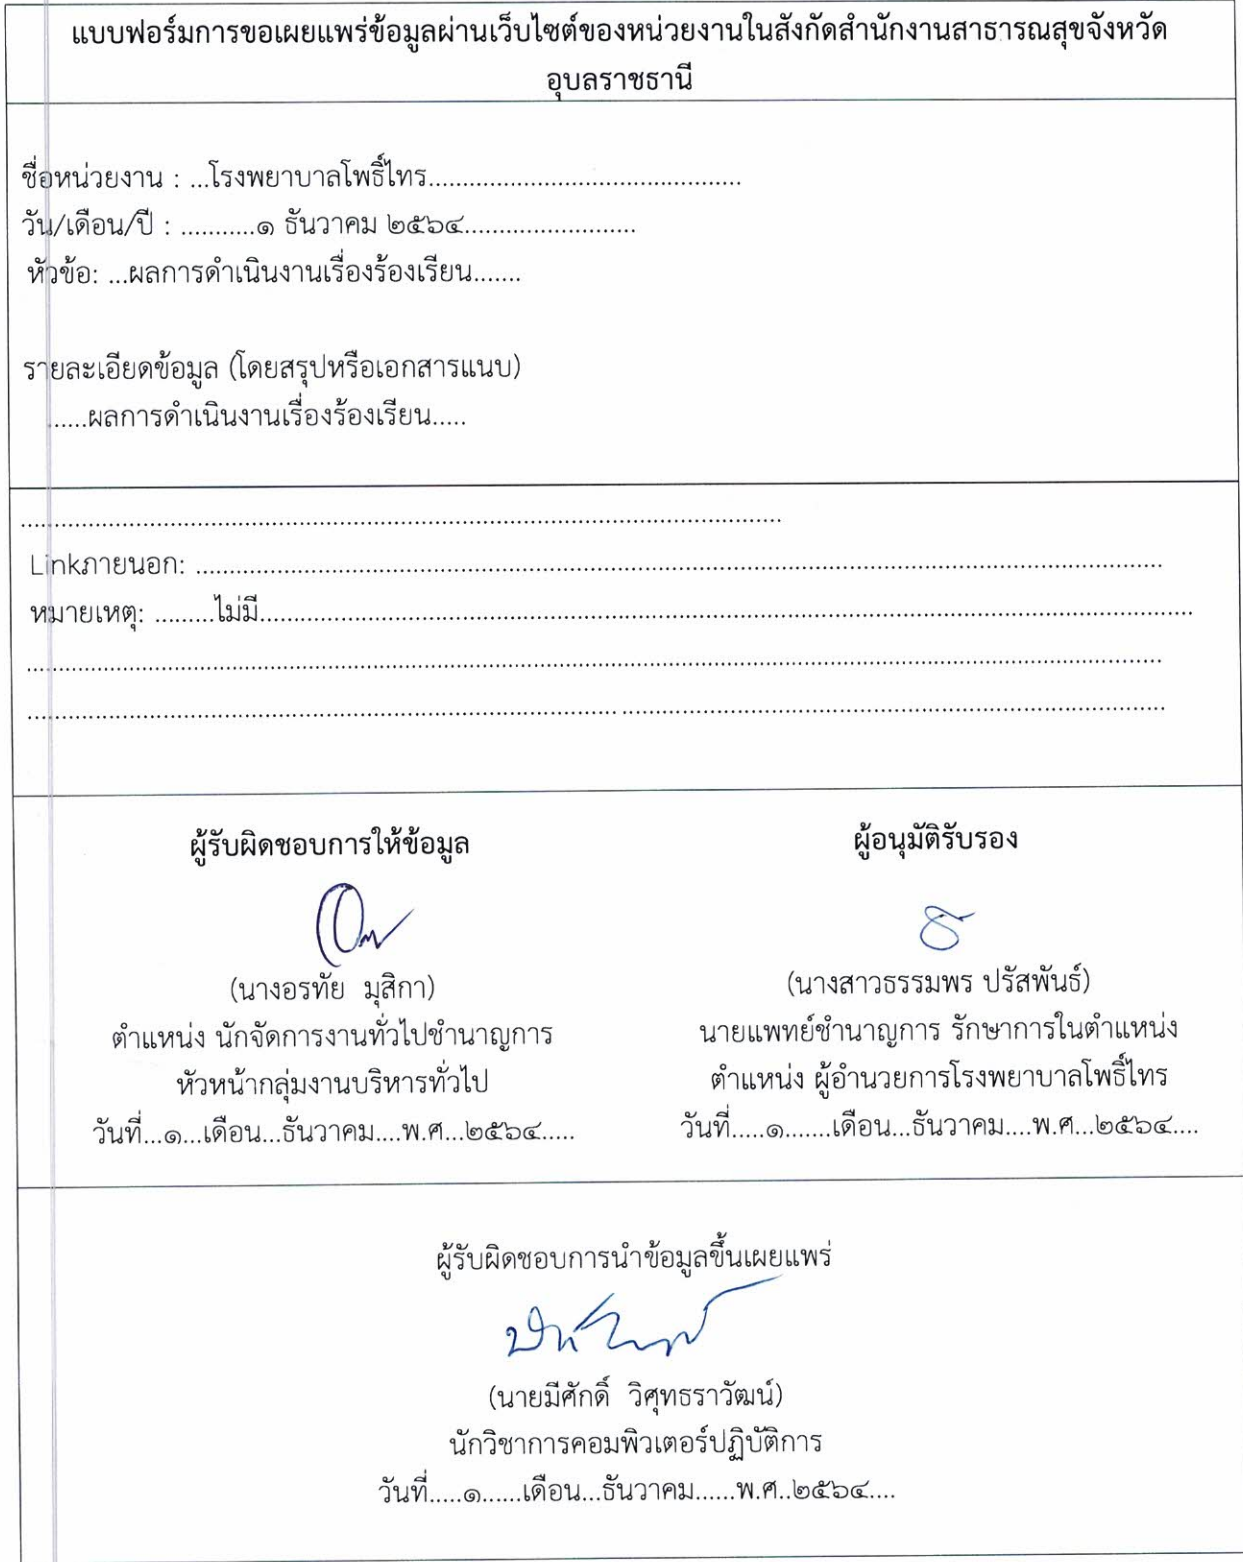 แบบฟอร์มการขอเผยแพร่ข้อมูลผ่านเว็บไซต์ของหน่วยงานในสังกัดสำนักงานสาธารณสุขจังหวัด
อุบลราชธานี
ชื่อหน่วยงาน : ...โรงพยาบาลโพธิ์ไทร.............................................
วัน/เดือน/ปี : ...........๑ ธันวาคม ๒๕๖๔.........................
หัวข้อ: ...ผลการดำเนินงานเรื่องร้องเรียน.......
รายละเอียดข้อมูล (โดยสรุปหรือเอกสารแนบ)
......ผลการดำเนินงานเรื่องร้องเรียน.....
Linkภายนอก: ..........................................................................
หมายเหตุ: .........ไม่มี..........................................................................
ผู้รับผิดชอบการให้ข้อมูล
(นางอรทัย มุสิกา)
ตำแหน่ง นักจัดการงานทั่วไปชำนาญการ
หัวหน้ากลุ่มงานบริหารทั่วไป
วันที่...๑...เดือน...ธันวาคม....พ.ศ...๒๕๖๔.....
ผู้อนุมัติรับรอง
(นางสาวธรรมพร ปรัสพันธ์)
นายแพทย์ชำนาญการ รักษาการในตำแหน่ง
ตำแหน่ง ผู้อำนวยการโรงพยาบาลโพธิ์ไทร
วันที่.....๑.......เดือน...ธันวาคม....พ.ศ...๒๕๖๔....
ผู้รับผิดชอบการนำข้อมูลขึ้นเผยแพร่
(นายมีศักดิ์ วิศุทธราวัฒน์)
นักวิชาการคอมพิวเตอร์ปฏิบัติการ
วันที่.....๑......เดือน...ธันวาคม......พ.ศ..๒๕๖๔....